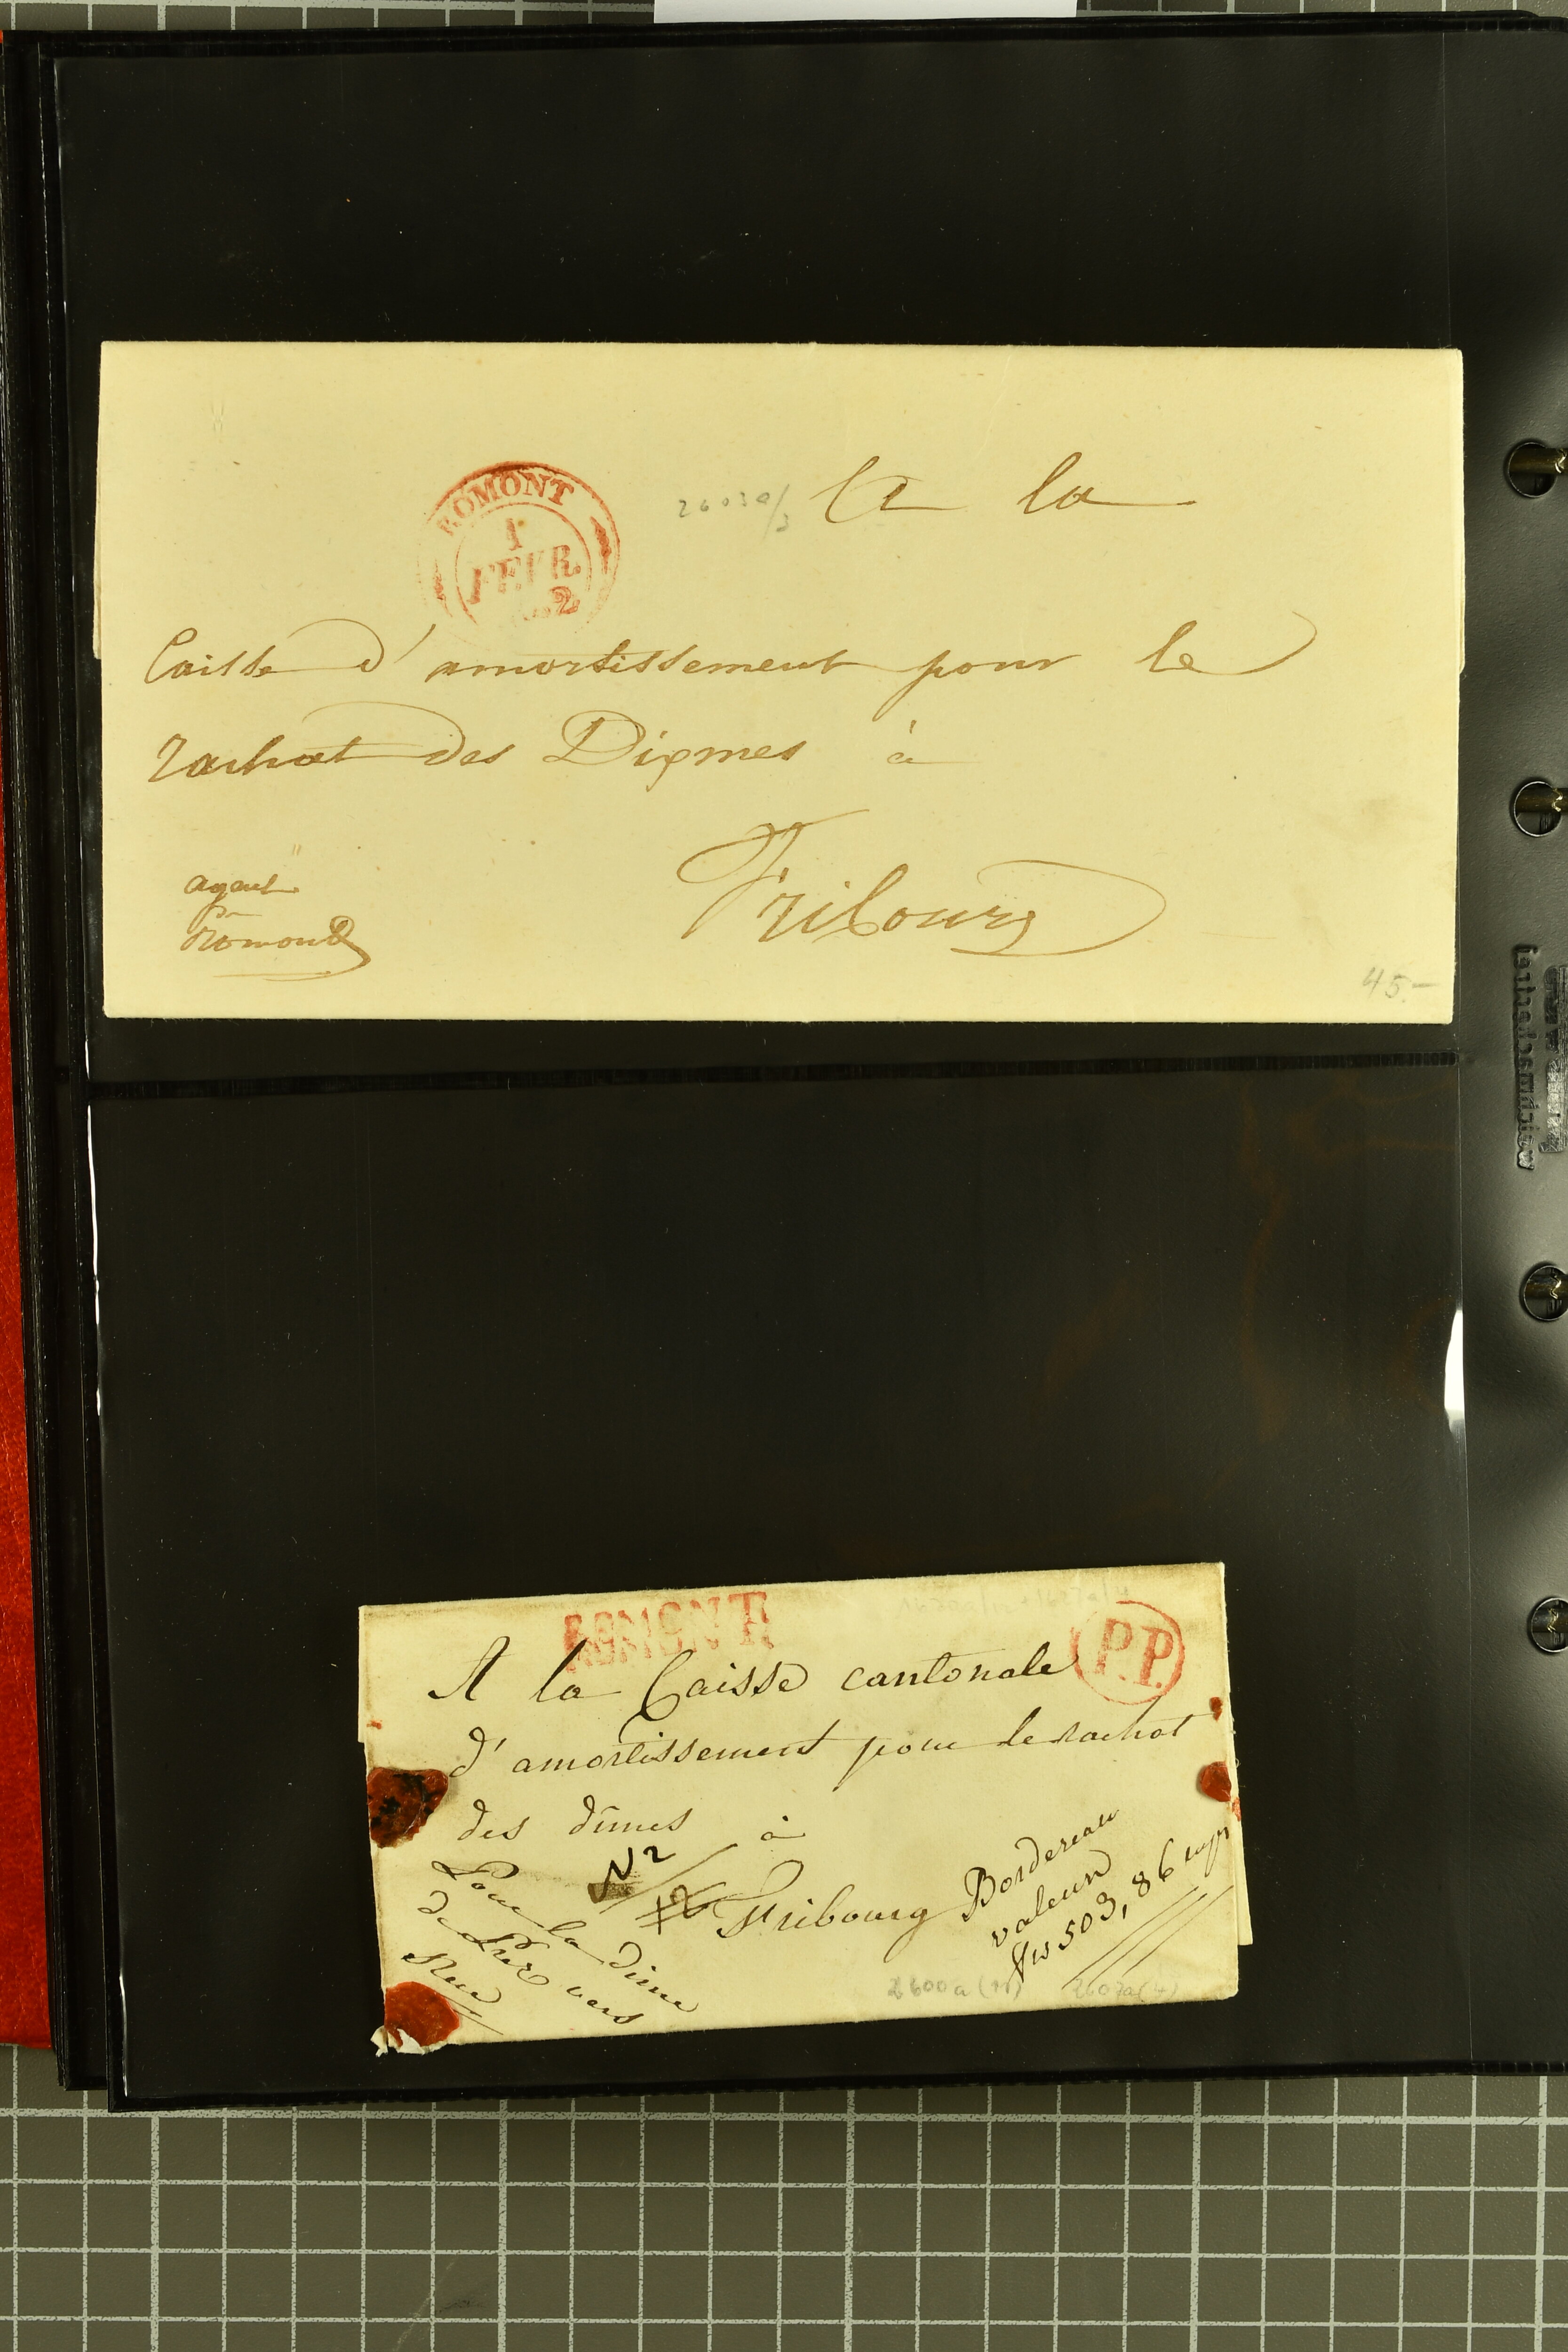 ROMONT
1
FEVR.
2
26030/3
A la
Caisse d'amortissement pour le
rachat des Dixmes à
Fribourg
agent
Romont
45.-
ROMONT
P.P.
A la Caisse cantonale
d'amortissement pour le rachat
des dîmes à
Fribourg
N 2
Bordereau
valeur
frs 503, 86 rap
Pour la dime
de Prez vers
Rue
2600a (11)
2607a(4)